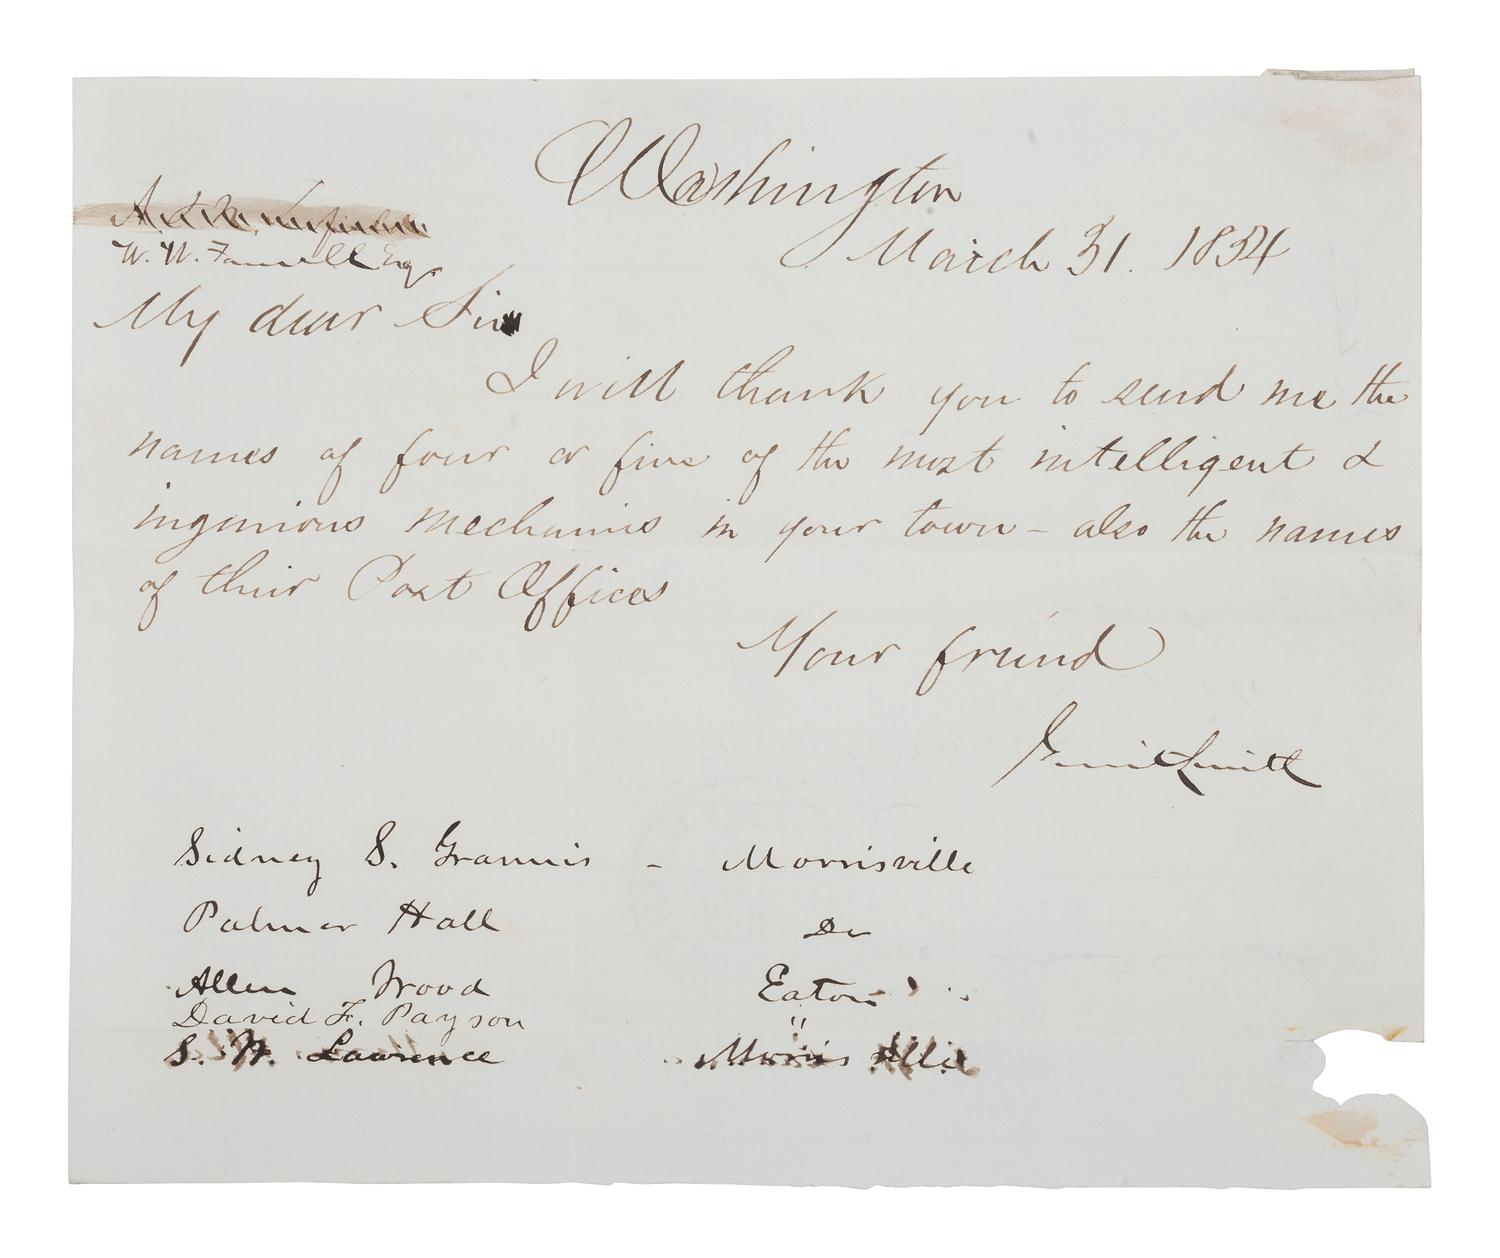 Washington
March 31. 1854
W. W. Farwell Esqr
My dear Sir
I will thank you to send me the
names of four or five of the most intelligent &
ingenious mechanics in your town - also the names
of their Post Offices
Your friend
Gerrit Smith
Sidney S. Grannis - Morrisville
Palmer Hall Do
Allen Wood Eaton
David F. Payson "
S. W. Lawrence Morrisville